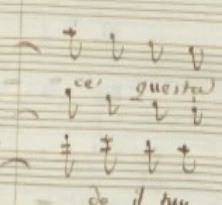 ce' questa
do il tuo